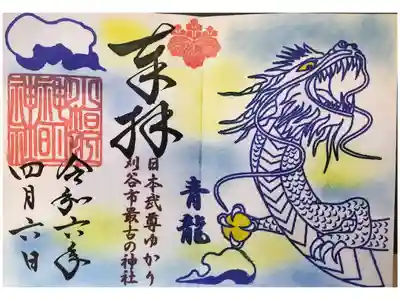 奉拝
青龍
日本武尊ゆかり
刈谷市最古の神社
小垣江
神明
神社
令和六年
四月六日